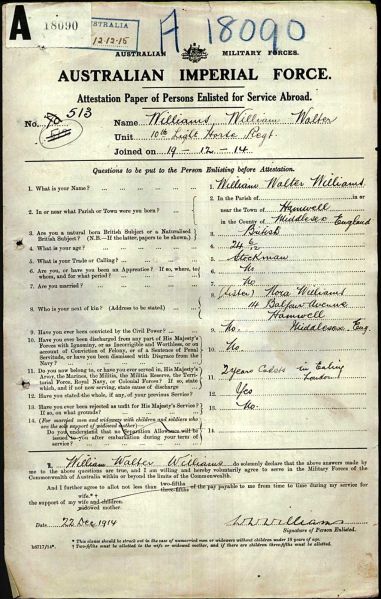 A 18090 AUSTRALIA A 18090
12-12-15
AUSTRALIAN MILITARY FORCES.
AUSTRALIAN IMPERIAL FORCE.
Attestation Paper of Persons Enlisted for Service Abroad.
No. 513 Name Williams, William Walter
Unit 10th Light Horse Regt.
Joined on 19 - 12 - 14
Questions to be put to the Person Enlisting before Attestation.
1. What is your Name? 1. William Walter Williams
2. In or near what Parish or Town were you born? 2. In the Parish of
near the Town of Hanwell
in the County of Middlesex England
3. Are you a natural born British Subject or a Naturalised British Subject? (N.B.—If the latter, papers to be shown.) 3. British
4. What is your age? 4. 24 6/12
5. What is your Trade or Calling? 5. Stockman
6. Are you, or have you been an Apprentice? If so, where, to whom, and for what period? 6. No
7. Are you married? 7. No
8. Who is your next of kin? (Address to be stated) 8. (Sister) Nora Williams
14 Balfour Avenue
Hanwell
Middlesex, Eng.
9. Have you ever been convicted by the Civil Power? 9. No.
10. Have you ever been discharged from any part of His Majesty's Forces with Ignominy, or as Incorrigible and Worthless, or on account of Conviction of Felony, or of a Sentence of Penal Servitude, or have you been dismissed with Disgrace from the Navy? 10. No
11. Do you now belong to, or have you ever served in, His Majesty's Army, the Marines, the Militia, the Militia Reserve, the Territorial Force, Royal Navy, or Colonial Forces? If so, state which, and if not now serving, state cause of discharge 11. 2 years Cadets in Ealing
London
12. Have you stated the whole, if any, of your previous Service? 12. Yes
13. Have you ever been rejected as unfit for His Majesty's Service? If so, on what grounds? 13. No.
14. (For married men and widowers with children and soldiers who are the sole support of widowed mother)
Do you understand that no Separation Allowance will be issued to you after embarkation during your term of service? 14.
I, William Walter Williams do solemnly declare that the above answers made by me to the above questions are true, and I am willing and hereby voluntarily agree to serve in the Military Forces of the Commonwealth of Australia within or beyond the limits of the Commonwealth.
And I further agree to allot not less than two-fifths three-fifths of the pay payable to me from time to time during my service for
the support of my wife*† wife and children. widowed mother.
Date 22 Dec 1914 W.W. Williams
Signature of Person Enlisted.
* This clause should be struck out in the case of unmarried men or widowers without children under 18 years of age.
† Two-fifths must be allotted to the wife or widowed mother, and if there are children three-fifths must be allotted.